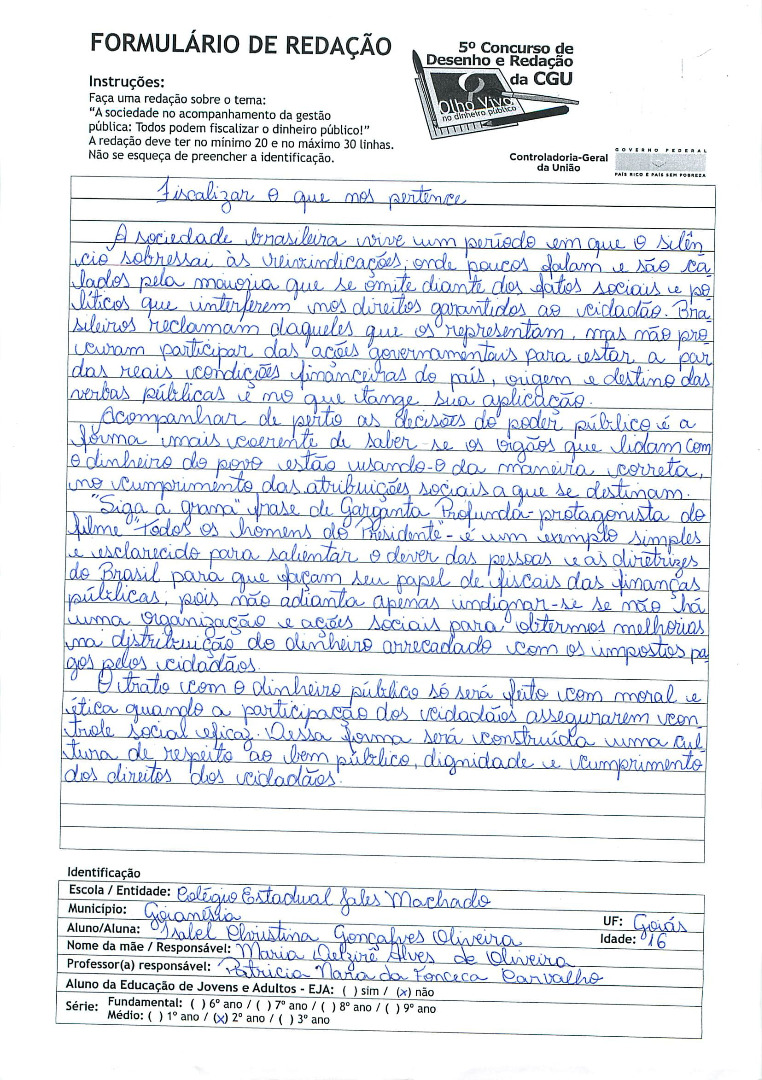 FORMULÁRIO DE REDAÇÃO
5º Concurso de
Desenho e Redação
da CGU
Olho Vivo
no dinheiro público
Instruções:
Faça uma redação sobre o tema:
“A sociedade no acompanhamento da gestão
pública: Todos podem fiscalizar o dinheiro público!”
A redação deve ter no mínimo 20 e no máximo 30 linhas.
Não se esqueça de preencher a identificação.
Controladoria-Geral
da União
GOVERNO FEDERAL
PAÍS RICO É PAÍS SEM POBREZA
Fiscalizar o que nos pertence
A sociedade brasileira vive um período em que o silên
cio sobressai às reivindicações, onde poucos falam e são ca
lados pela maioria que se omite diante dos fatos sociais e po
líticos que interferem nos direitos garantidos ao cidadão. Bra
sileiros reclamam daqueles que os representam, mas não pro
curam participar das ações governamentais para estar a par
das reais condições financeiras do país, origem e destino das
verbas públicas e no que tange sua aplicação.
Acompanhar de perto as decisões do poder público é a
forma mais coerente de saber-se os órgãos que lidam com
o dinheiro do povo estão usando-o da maneira correta,
no cumprimento das atribuições sociais a que se destinam.
"Siga a grana" frase de Garganta Profunda-protagonista do
filme "Todos os homens do Presidente"- é um exemplo simples
e esclarecido para salientar o dever das pessoas e as diretrizes
do Brasil para que façam seu papel de fiscais das finanças
públicas, pois não adianta apenas indignar-se se não há
uma organização e ações sociais para obtermos melhorias
na distribuição do dinheiro arrecadado com os impostos pa
gos pelos cidadãos.
O trato com o dinheiro público só será feito com moral e
ética quando a participação dos cidadãos assegurarem con
trole social eficaz. Dessa forma será construída uma cul
tura de respeito ao bem público, dignidade e cumprimento
dos direitos dos cidadãos.
Identificação
Escola / Entidade: Colégio Estadual Jales Machado
Município: Goianésia UF: Goiás
Aluno/Aluna: Isabel Christina Gonçalves Oliveira Idade: 16
Nome da mãe / Responsável: Maria Delzirê Alves de Oliveira
Professor(a) responsável: Patricia Nara da Fonceca Carvalho
Aluno da Educação de Jovens e Adultos - EJA: ( ) sim / (x) não
Série: Fundamental: ( ) 6º ano / ( ) 7º ano / ( ) 8º ano / ( ) 9º ano
Médio: ( ) 1º ano / (x) 2º ano / ( ) 3º ano